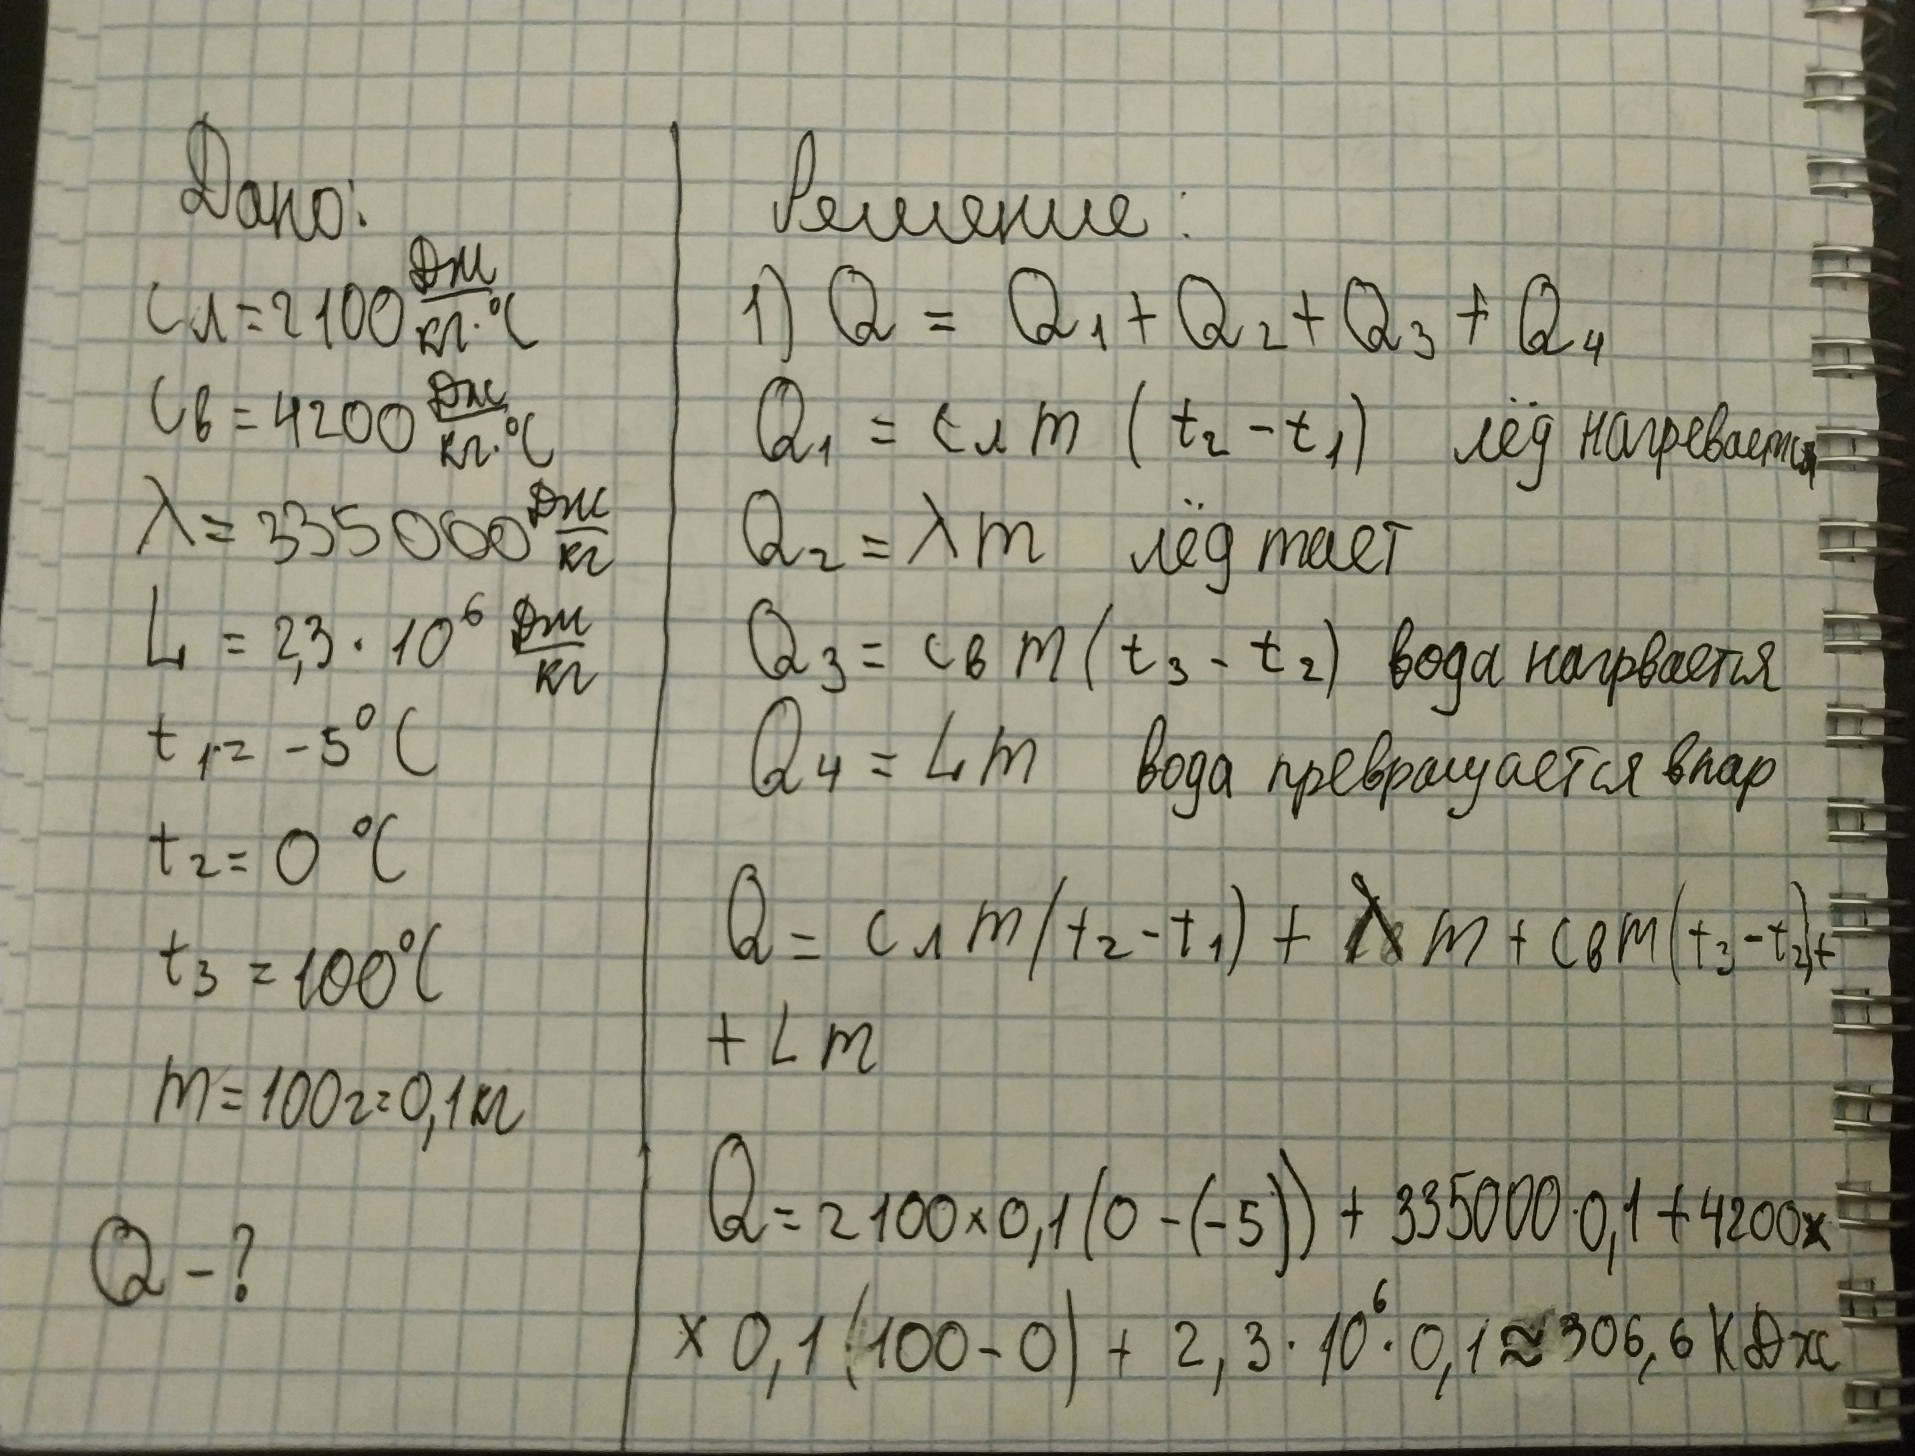 Дано:
cл = 2100 Дж/кг·°C
cв = 4200 Дж/кг·°C
λ = 335000 Дж/кг
L = 2,3 · 10⁶ Дж/кг
t₁ = -5°C
t₂ = 0 °C
t₃ = 100°C
m = 100г = 0,1кг
Q - ?
Решение:
1) Q = Q₁ + Q₂ + Q₃ + Q₄
Q₁ = cл m (t₂ - t₁) лёд нагревается
Q₂ = λ m лёд тает
Q₃ = cв m (t₃ - t₂) вода нагрвается
Q₄ = L m вода превращается впар
Q = cл m (t₂ - t₁) + λ m + cв m (t₃ - t₂) +
+ L m
Q = 2100 × 0,1 (0 - (-5)) + 335000 · 0,1 + 4200 ×
× 0,1 (100 - 0) + 2,3 · 10⁶ · 0,1 ≈ 306,6 КДж